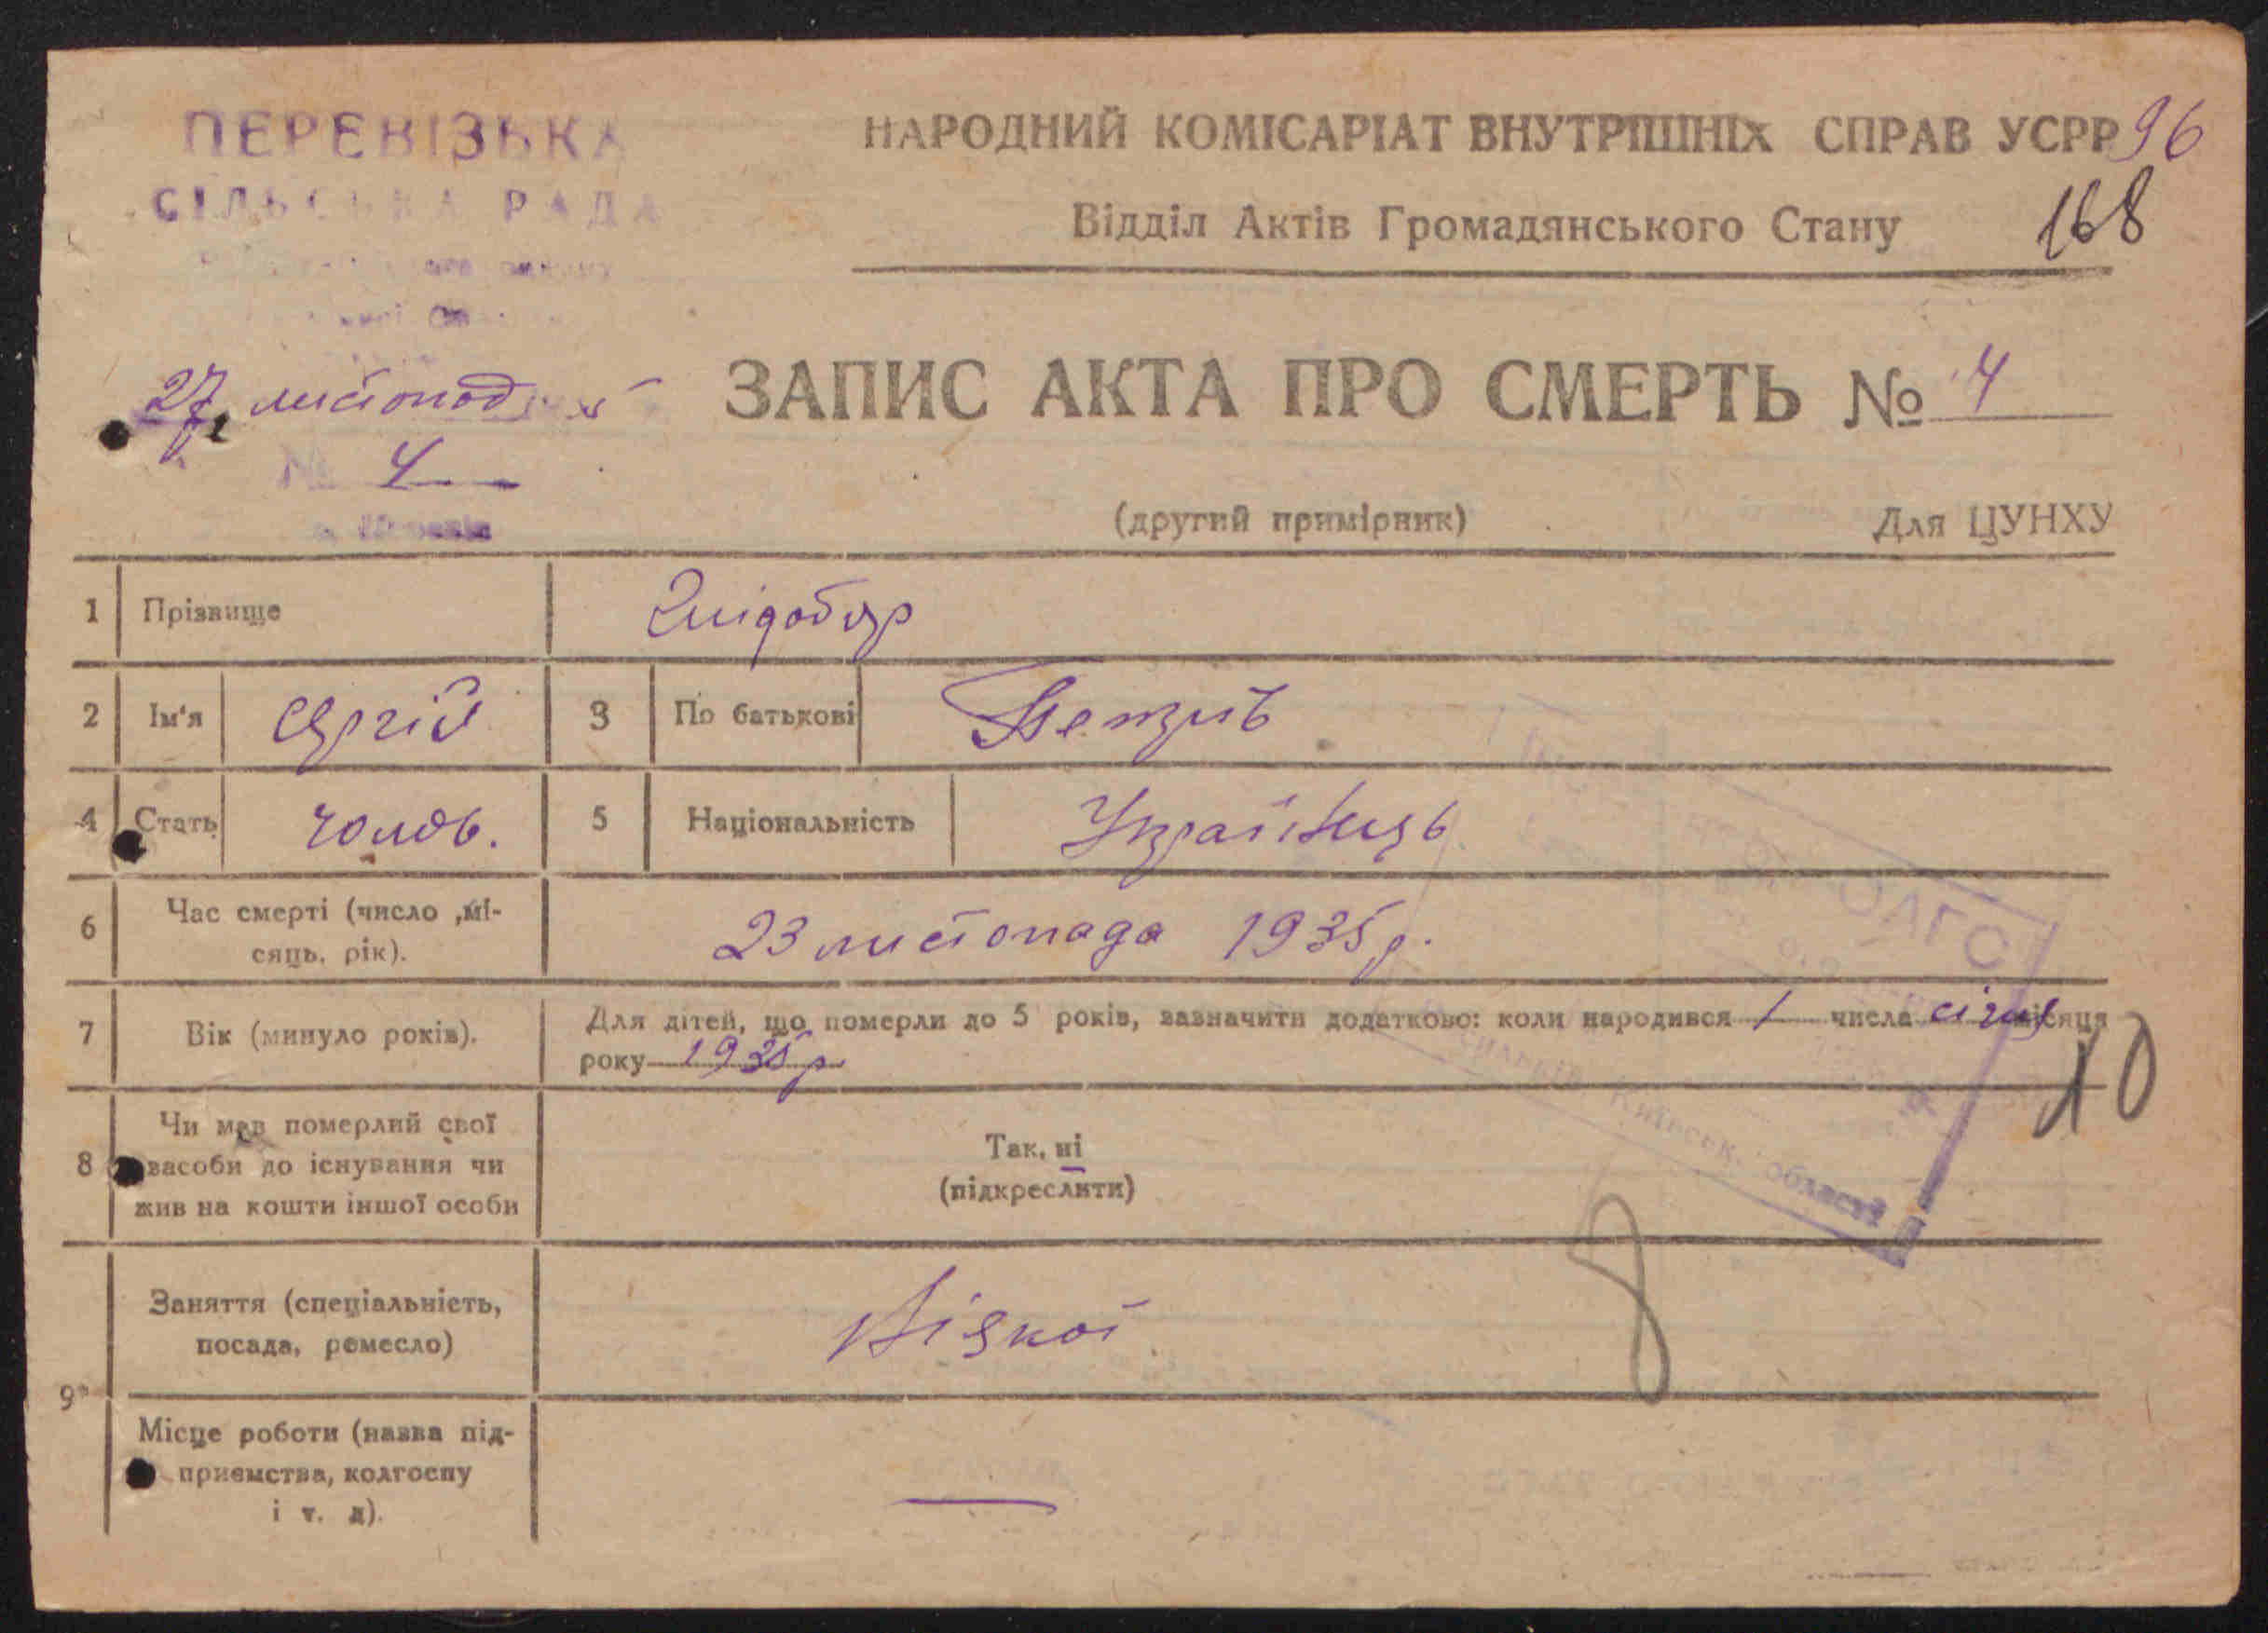 ПЕРЕВІЗЬКА
СІЛЬСЬКА РАДА
27 листопада
№ 4
НАРОДНИЙ КОМІСАРІАТ ВНУТРІШНІХ СПРАВ УСРР 96
Відділ Актів Громадянського Стану 168
ЗАПИС АКТА ПРО СМЕРТЬ № 4
(другий примірник) Для ЦУНХУ
1 Прізвище
2 Ім'я Сергій 3 По батькові
4 Стать чолов. 5 Національність Українець
6 Час смерті (число, мі-
сяць, рік). 23 листопада 1935 р.
7 Вік (минуло років). Для дітей, що померли до 5 років, зазначити додатково: коли народився 1 числа січня місяця
року 1935 р
10
8 Чи мав померлий свої
засоби до існування чи
жив на кошти іншої особи
Так, ні
(підкреслити)
Київськ. області
9 Заняття (спеціальність,
посада, ремесло)
Місце роботи (назва під-
приємства, колгоспу
і т. д).
—